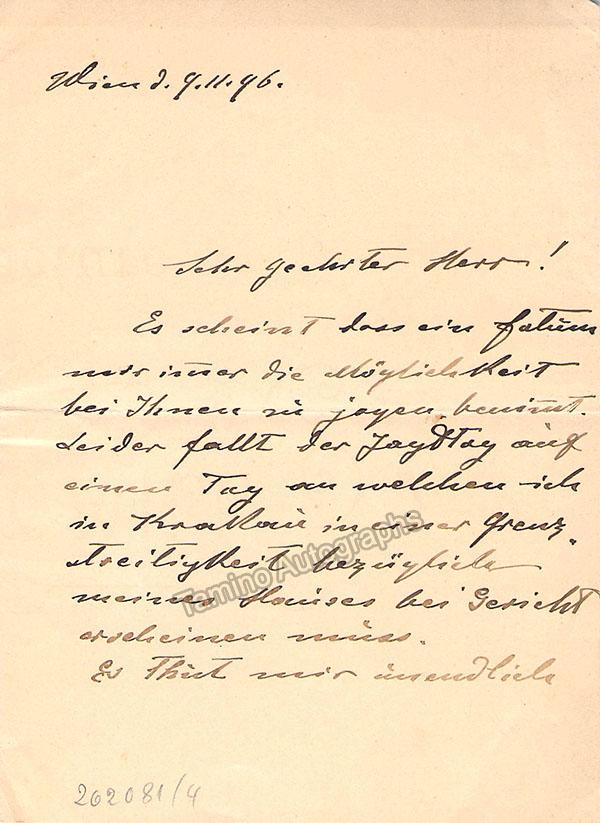 Wien d. 9.11.96.
Sehr geehrter Herr!
Es scheint dass ein fatum
mir immer die Möglichkeit
bei Ihnen zu jagen benimmt.
Leider fällt der Jagdtag auf
einen Tag an welchen ich
in Krakau in einer Grenz„
streitigkeit bezüglich
meines Hauses bei Gericht
erscheinen muss.
Es thut mir unendlich
Tamino Autographs
202081/4